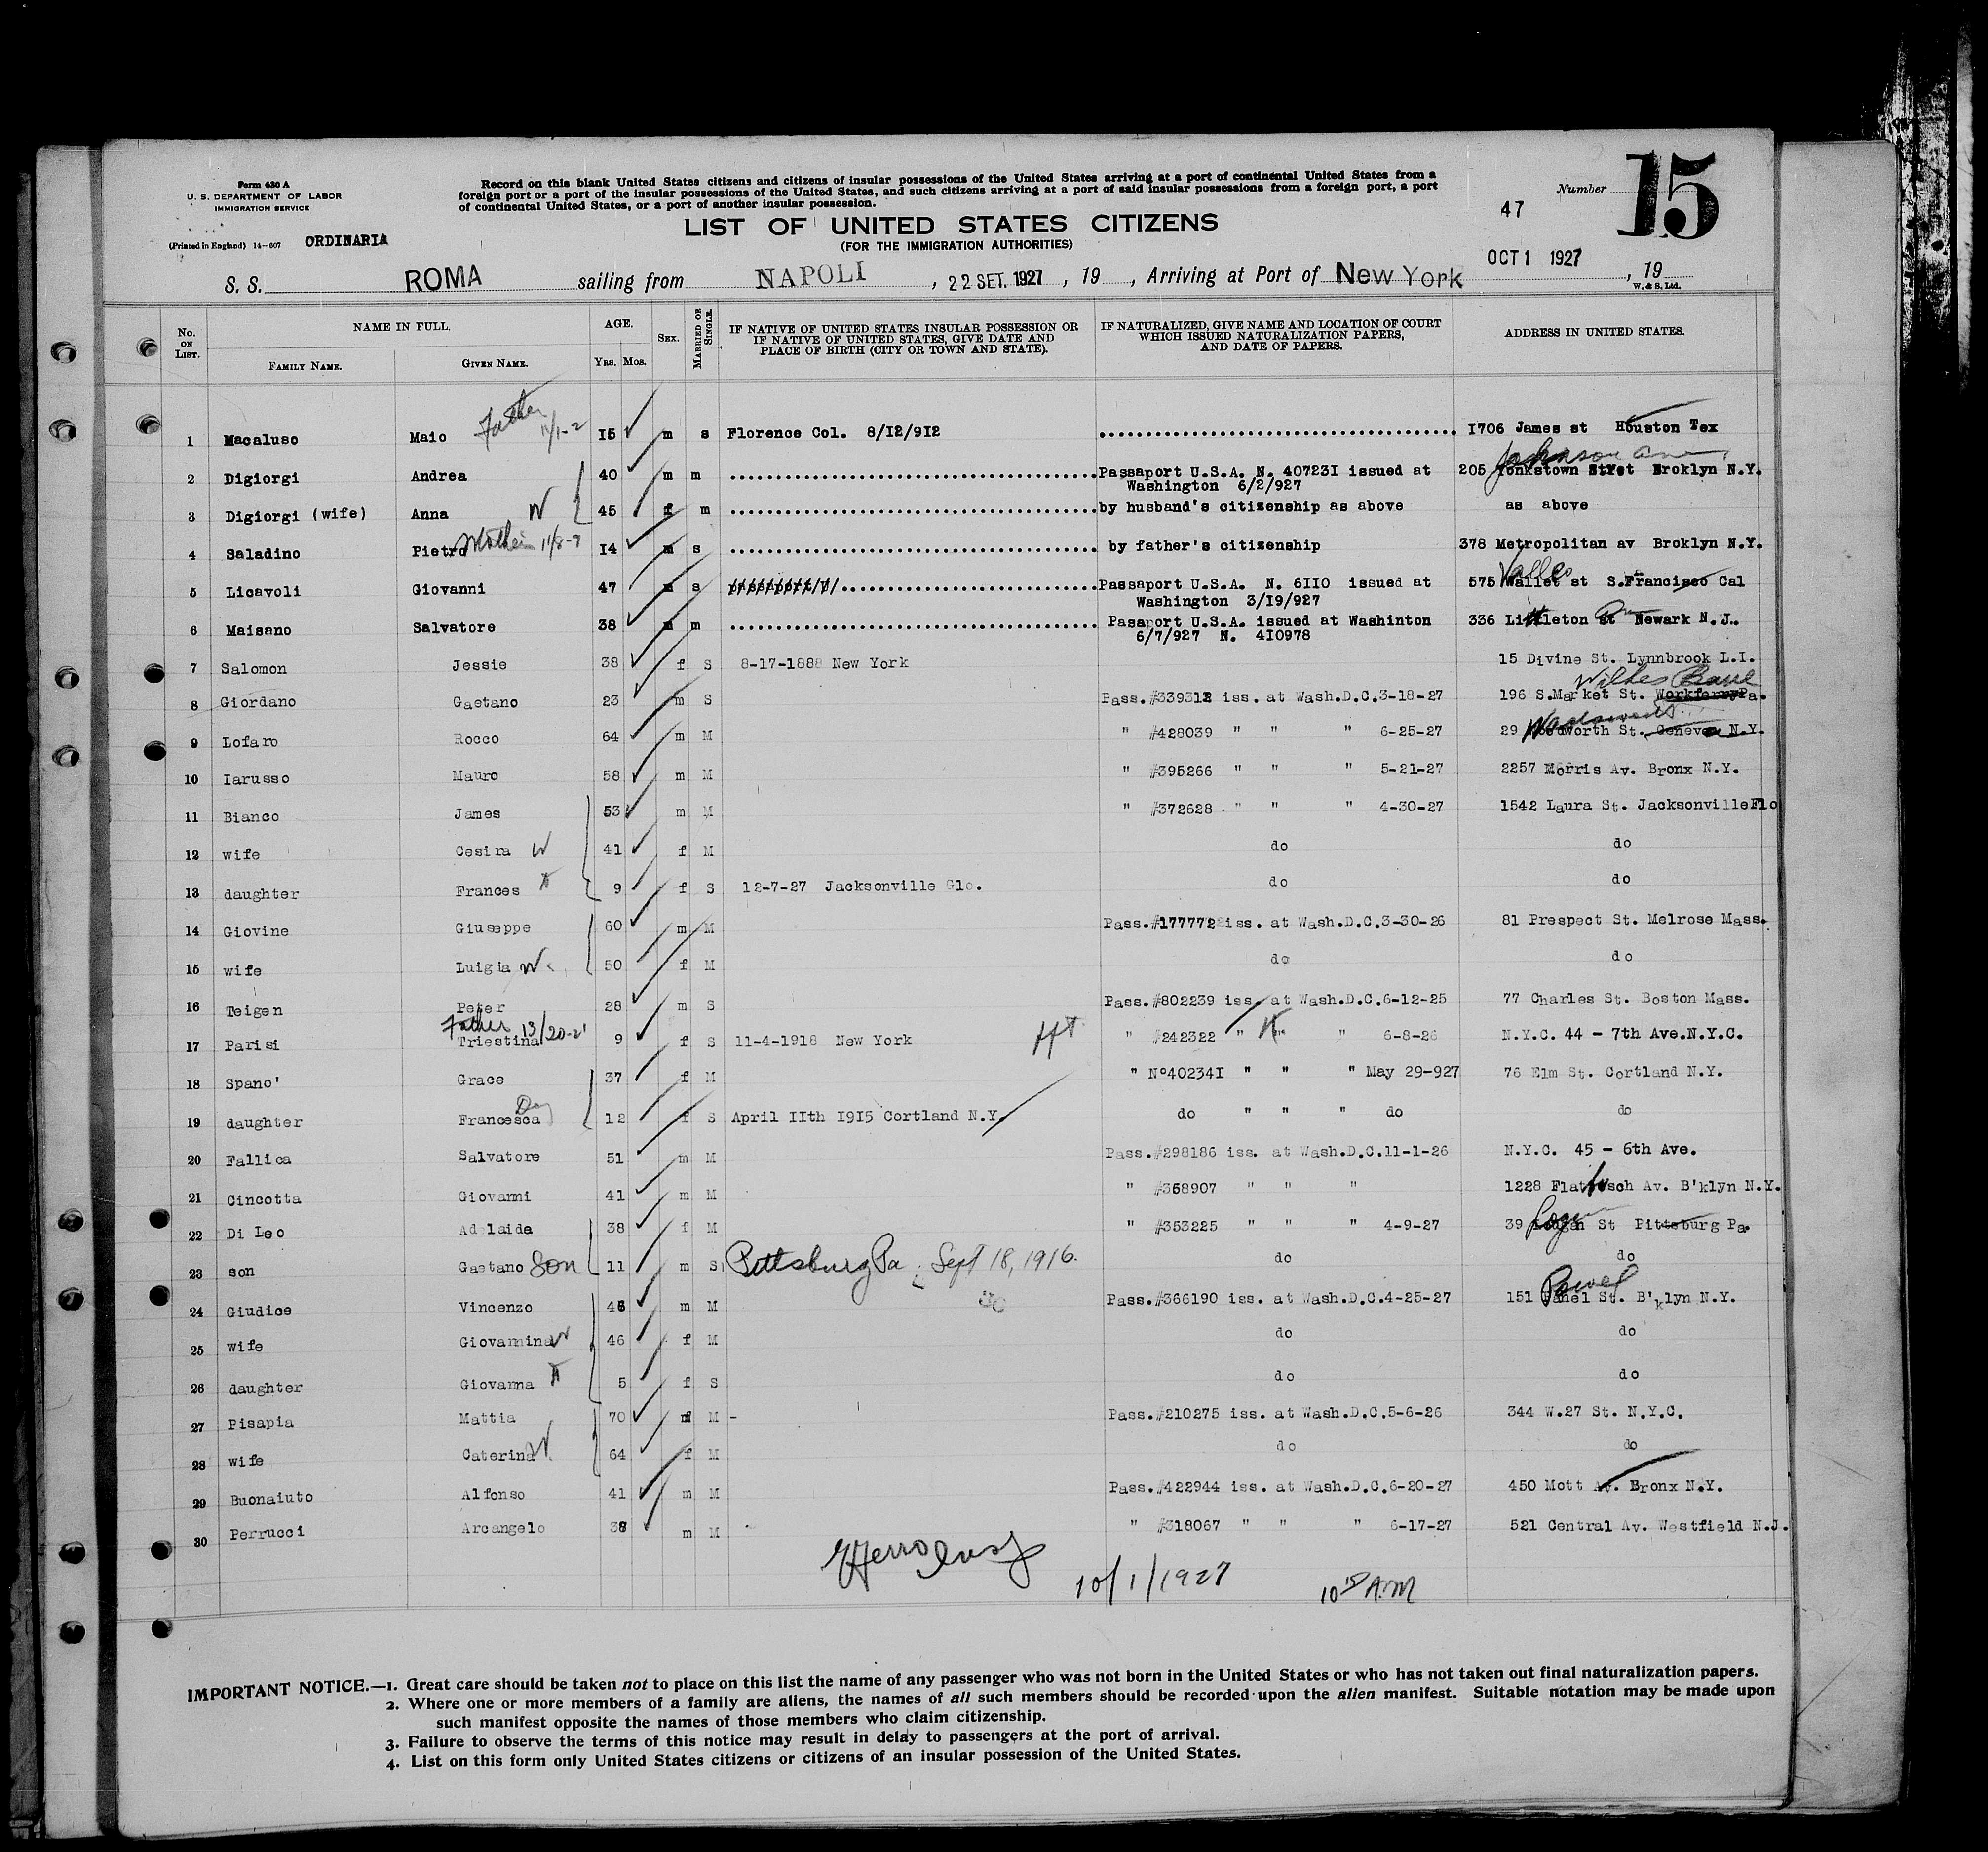 Form 630 A
U. S. DEPARTMENT OF LABOR
IMMIGRATION SERVICE
(Printed in England) 14—607
ORDINARIA
Record on this blank United States citizens and citizens of insular possessions of the United States arriving at a port of continental United States from a
foreign port or a port of the insular possessions of the United States, and such citizens arriving at a port of said insular possessions from a foreign port, a port
of continental United States, or a port of another insular possession.
LIST OF UNITED STATES CITIZENS
(FOR THE IMMIGRATION AUTHORITIES)
Number 15
47
S. S. ROMA sailing from NAPOLI, 22 SET. 1927, 19 , Arriving at Port of New York OCT 1 1927, 19
W. & S. Ltd.
No. ON LIST. NAME IN FULL. FAMILY NAME. GIVEN NAME. AGE. YRS. MOS. SEX. MARRIED OR SINGLE.
IF NATIVE OF UNITED STATES INSULAR POSSESSION OR IF NATIVE OF UNITED STATES, GIVE DATE AND PLACE OF BIRTH (CITY OR TOWN AND STATE).
IF NATURALIZED, GIVE NAME AND LOCATION OF COURT WHICH ISSUED NATURALIZATION PAPERS, AND DATE OF PAPERS.
ADDRESS IN UNITED STATES.
1 Macaluso Maio Father 15 m s Florence Col. 8/12/912 1706 James st Houston Tex
Johnson ave
2 Digiorgi Andrea 40 m m Passaport U.S.A. N. 407231 issued at 205 Stret Broklyn N.Y.
Washington 6/2/927
3 Digiorgi (wife) Anna W 45 f m by husband's citizenship as above as above
4 Saladino Pietro Mother 11/8-9 14 m s by father's citizenship 378 Metropolitan av Broklyn N.Y.
5 Licavoli Giovanni 47 m s Passaport U.S.A. N. 6110 issued at 575 Vallejo st S.Francisco Cal
Washington 3/19/927
6 Maisano Salvatore 38 m m Pasaport U.S.A. issued at Washinton 336 Littleton st Newark N.J.
6/7/927 N. 410978
7 Salomon Jessie 38 f S 8-17-1888 New York 15 Divine St. Lynnbrook L.I.
Wilkes Barre
8 Giordano Gaetano 23 m S Pass.#339312 iss. at Wash.D.C.3-18-27 196 S.Market St. Pa.
Wadsworth
9 Lofaro Rocco 64 m M " #428039 " " " 6-25-27 29 Woodworth St. Geneva N.Y.
10 Iarusso Mauro 58 m M " #395266 " " " 5-21-27 2257 Morris Av. Bronx N.Y.
11 Bianco James 53 m M " #372628 " " " 4-30-27 1542 Laura St. Jacksonville Flo
12 wife Cesira W 41 f M do do
13 daughter Frances 9 f S 12-7-27 Jacksonville Glo. do do
14 Giovine Giuseppe 60 m M Pass.#177772 iss. at Wash.D.C.3-30-26 81 Prespect St. Melrose Mass.
15 wife Luigia W 50 f M do do
16 Teigen Peter 28 m S Pass.#802239 iss. at Wash.D.C.6-12-25 77 Charles St. Boston Mass.
Father 13/20-21
17 Parisi Triestina 9 f S 11-4-1918 New York " #242322 " " " 6-8-26 N.Y.C. 44 - 7th Ave.N.Y.C.
18 Spano' Grace 37 f M " Nº402341 " " " May 29-927 76 Elm St. Cortland N.Y.
19 daughter Francesca Da 12 f S April 11th 1915 Cortland N.Y. do " " " do do
20 Fallica Salvatore 51 m M Pass.#298186 iss. at Wash.D.C.11-1-26 N.Y.C. 45 - 6th Ave.
21 Cincotta Giovanni 41 m M " #358907 " " " 1228 Flatbusch Av. B'klyn N.Y.
22 Di Leo Adelaida 38 f M " #353225 " " " 4-9-27 39 Logan St Pittsburg Pa.
23 son Gaetano Son 11 m S Pittsburg Pa Sept 18, 1916. do do
24 Giudice Vincenzo 46 m M Pass.#366190 iss. at Wash.D.C.4-25-27 151 Powel St. B'klyn N.Y.
25 wife Giovannina W 46 f M do do
26 daughter Giovanna 5 f S do do
27 Pisapia Mattia 70 m M - Pass.#210275 iss. at Wash.D.C.5-6-26 344 W.27 St. N.Y.C.
28 wife Caterina W 64 f M do do
29 Buonaiuto Alfonso 41 m M Pass.#422944 iss. at Wash.D.C.6-20-27 450 Mott Av. Bronx N.Y.
30 Perrucci Arcangelo 38 m M " #318067 " " " 6-17-27 521 Central Av. Westfield N.J.
10/1/1927 10 15 A.M
IMPORTANT NOTICE.—1. Great care should be taken not to place on this list the name of any passenger who was not born in the United States or who has not taken out final naturalization papers.
2. Where one or more members of a family are aliens, the names of all such members should be recorded upon the alien manifest. Suitable notation may be made upon
such manifest opposite the names of those members who claim citizenship.
3. Failure to observe the terms of this notice may result in delay to passengers at the port of arrival.
4. List on this form only United States citizens or citizens of an insular possession of the United States.